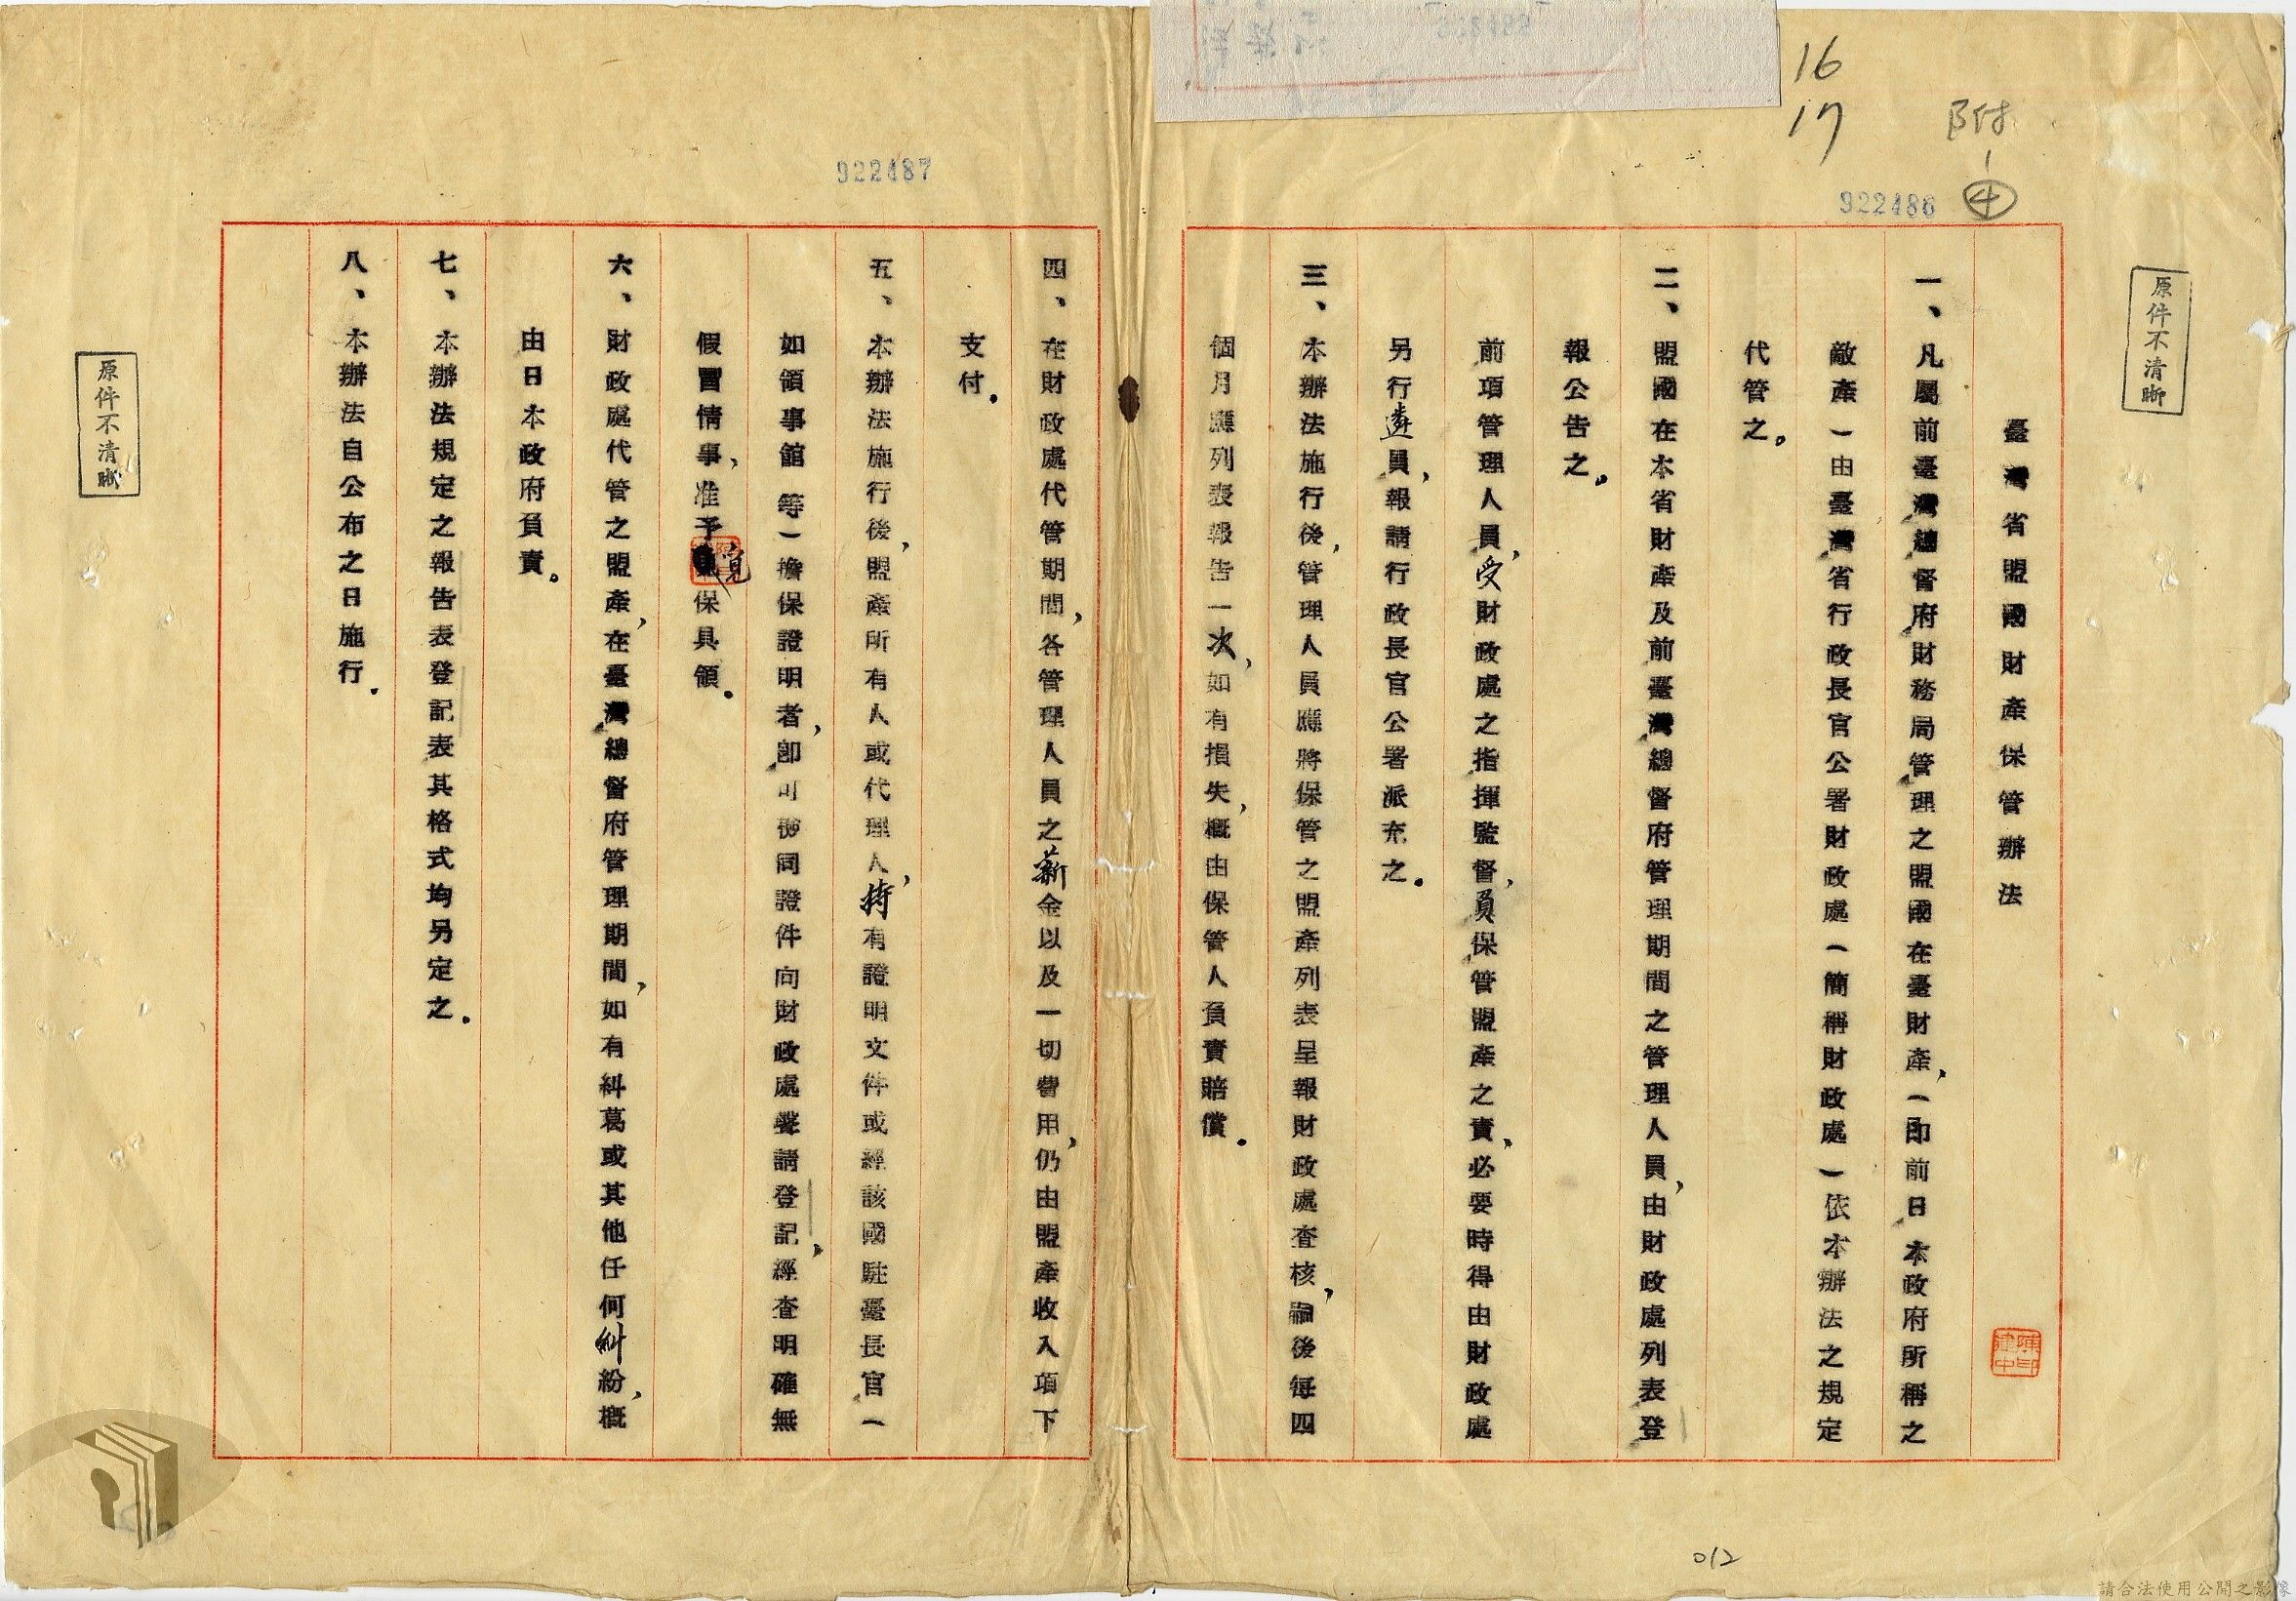 16
17
附
1
4
922486
原件不清晰
臺灣省盟國財產保管辦法
一、凡屬前臺灣總督府財務局管理之盟國在臺財產,(即前日本政府所稱之
敵產)由臺灣省行政長官公署財政處(簡稱財政處)依本辦法之規定
代管之。
二、盟國在本省財產及前臺灣總督府管理期間之管理人員,由財政處列表登
報公告之。
前項管理人員,受財政處之指揮監督,負保管盟產之責,必要時得由財政處
另行遴員,報請行政長官公署派充之。
三、本辦法施行後,管理人員應將保管之盟產列表呈報財政處查核,嗣後每四
個月應列表報告一次,如有損失,概由保管人負責賠償。
陳建中印
012
922487
四、在財政處代管期間,各管理人員之薪金以及一切費用,仍由盟產收入項下
支付。
五、本辦法施行後,盟產所有人或代理人,持有證明文件或經該國駐臺長官(
如領事館等)擔保證明者,卽可携同證件向財政處聲請登記,經查明確無
假冒情事,准予覓保具領。
六、財政處代管之盟產,在臺灣總督府管理期間,如有糾葛或其他任何糾紛,概
由日本政府負責。
七、本辦法規定之報告表登記表其格式均另定之。
八、本辦法自公布之日施行。
原件不清晰
請合法使用公開之影像